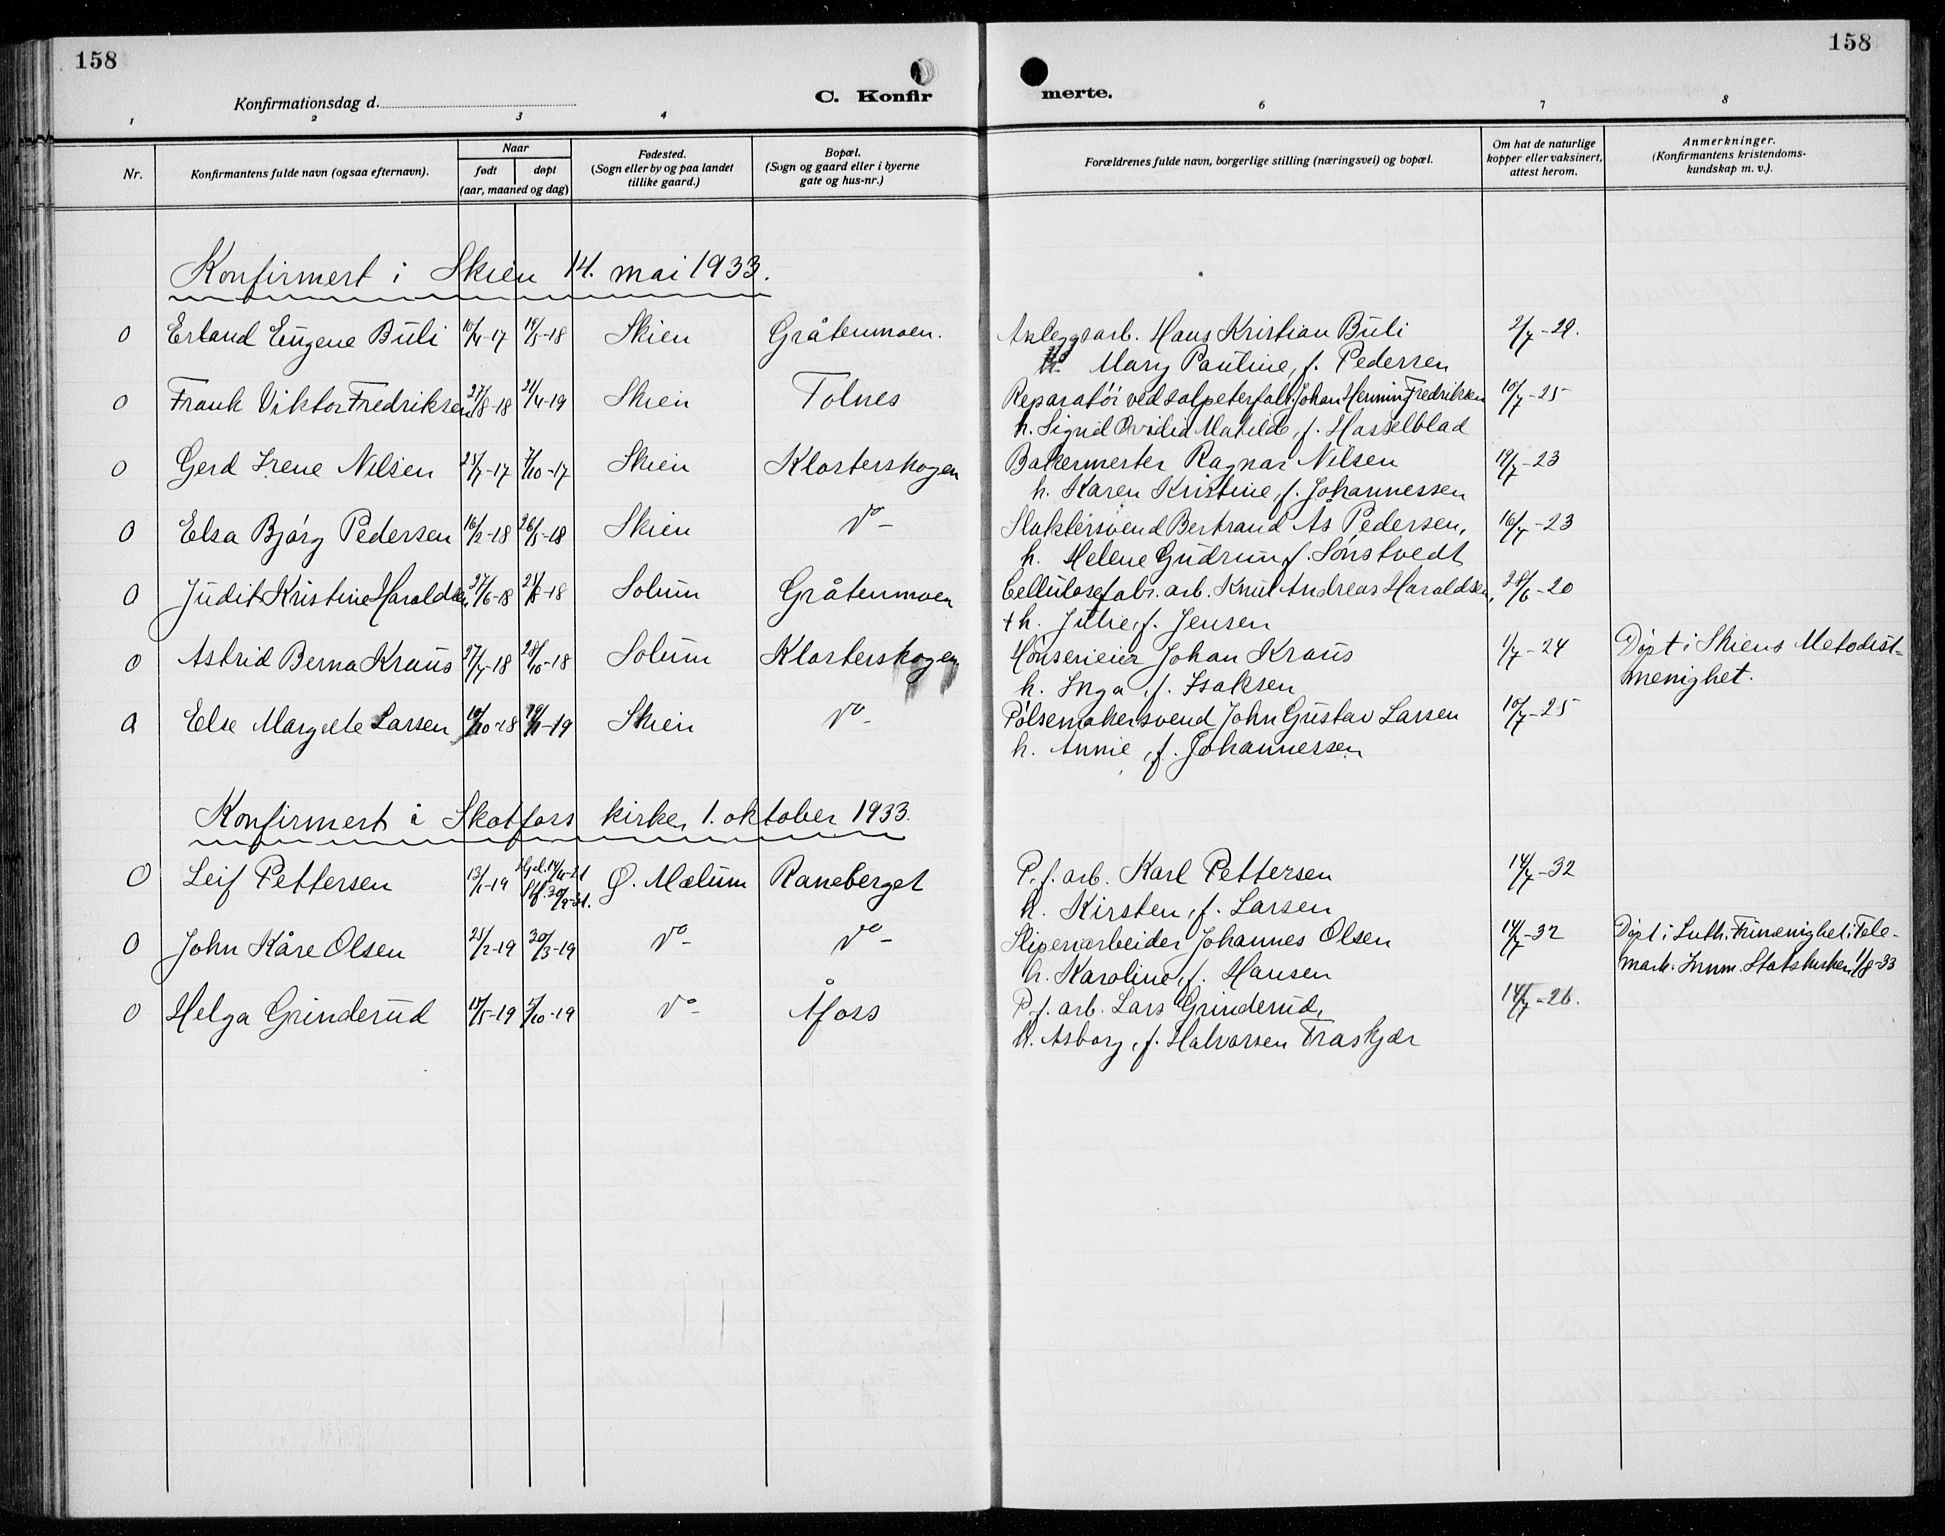 158
158
Konfirmationsdag d.
C. Konfirmerte.
1 2 3 4 6 7 8
Nr.
Konfirmantens fulde navn (ogsaa efternavn).
Naar
født
døpt
(aar, maaned og dag)
Fødested.
(Sogn eller by og paa landet
tillike gaard.)
Bopæl.
(Sogn og gaard eller i byerne
gate og hus-nr.)
Forældrenes fulde navn, borgerlige stilling (næringsvei) og bopæl.
Om hat de naturlige
kopper eller vaksinert,
attest herom.
Anmerkninger.
(Konfirmantens kristendoms-
kundskap m. v.).
Konfirmert i Skien 14. mai 1933.
0 Erland Eugene Buli -17 -18 Skien Gråtenmoen. Anleggsarb. Hans Kristian Buli 2/7-29.
h. Mary Pauline, f. Pedersen
0 Frank Viktor Fredriksen 27/8-18 21/4-19 Skien Tolnes Reparatør ved salpeterfabr. Johan Fredriksen 10/7-25
h. Sigrid Ovidia Matilde, f. Hasselblad
0 Gerd Irene Nilsen -17 7/10-17 Skien Klosterskogen Bakermester Ragnar Nilsen 19/7-23
h. Karen Kristine, f. Johannessen
0 Elsa Bjørg Pedersen 16/2-18 26/5-18 Skien do- Slaktersvend Bertrand As Pedersen, 16/7-23
h. Helene Gudrun f. Sønstvedt
0 Judit Kristine Haraldsen 27/6-18 -18 Solum Gråtenmoen Cellulosefabr. arb. Knut Andreas Haraldsen, 28/6-20
+h. Julie, f. Jensen
0 Astrid Berna Kraus 27/7-18 28/10-18 Solum Klosterskogen Hønserieier Johan Kraus 1/7-24 Døpt i Skiens Metodist-
h. Inga, f. Isaksen menighet.
a Else Margrete Larsen -18 -19 Skien do- Pølsemakersvend John Gustav Larsen 10/7-25
h. Annie, f. Johannessen
Konfirmert i Skotfoss kirke, 1. oktober 1933.
0 Leif Pettersen 13/1-19 Ø. Mælum Raneberget P. f. arb. Karl Pettersen 14/7-32
h. Kirsten, f. Larsen
0 John Kåre Olsen 25/2-19 30/3-19 do- do- Sliperiarbeider Johannes Olsen 14/7-32 Døpt i Luth. Frimenighet i Tele-
h. Karoline, f. Hansen mark. Innm. Statskirken 1/8-33
0 Helga Grinderud -19 5/10-19 do- Åfoss P. f. arb. Lars Grinderud, 14/7-26.
h. Asborg, f. Halvorsen Fraskjær